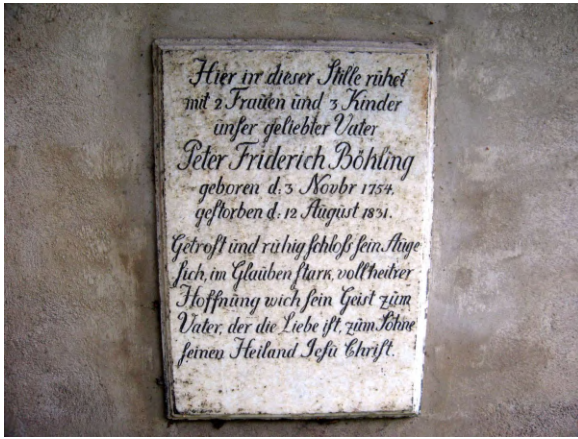 Hier in dieser Stille ruhet
mit 2 Frauen und 3 Kinder
unser geliebter Vater
Peter Friderich Böhling
geboren d: 3 Novbr 1754.
gestorben d: 12 August 1831.
Getrost und ruhig schloß sein Auge
sich, im Glauben stark, voll heitrer
Hoffnung wich sein Geist zum
Vater, der die Liebe ist, zum Sohne
seinen Heiland Jesu Christ.